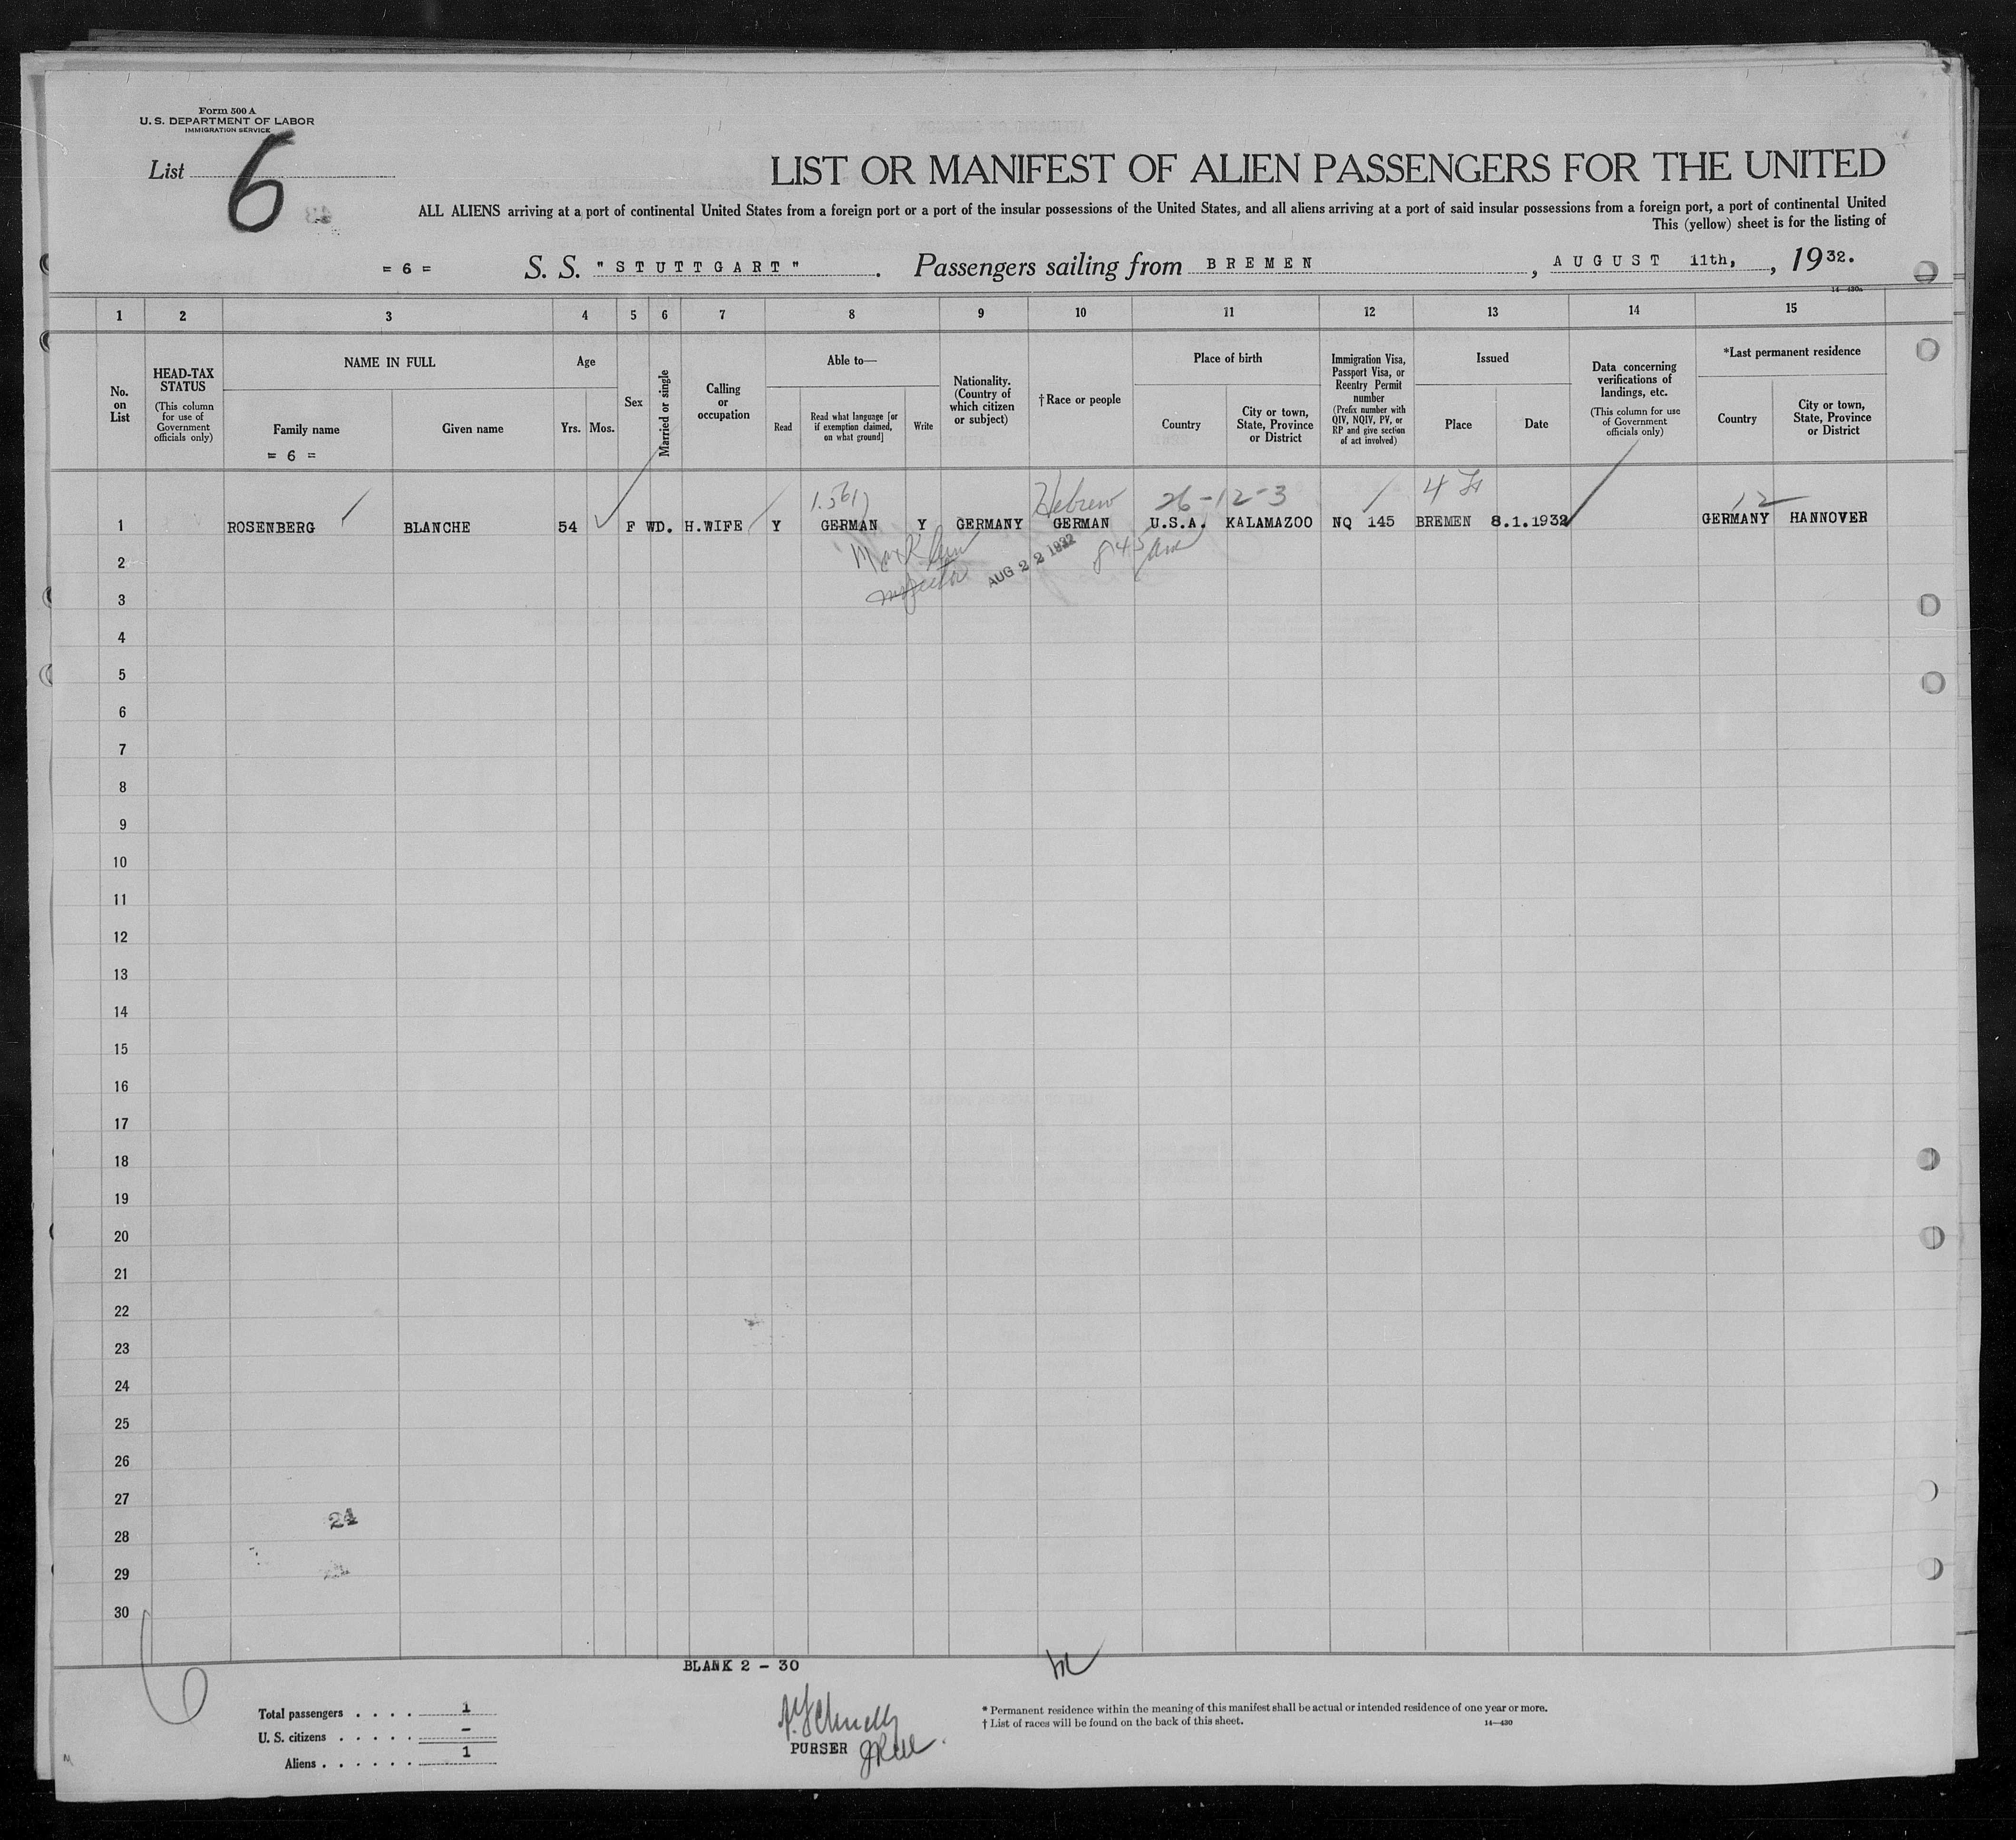 Form 500 A
U. S. DEPARTMENT OF LABOR
IMMIGRATION SERVICE
List 6
LIST OR MANIFEST OF ALIEN PASSENGERS FOR THE UNITED
ALL ALIENS arriving at a port of continental United States from a foreign port or a port of the insular possessions of the United States, and all aliens arriving at a port of said insular possessions from a foreign port, a port of continental United
This (yellow) sheet is for the listing of
= 6 = S. S. "STUTTGART". Passengers sailing from BREMEN, AUGUST 11th, 1932.
14—430a
1 2 3 4 5 6 7 8 9 10 11 12 13 14 15
No. on List
HEAD-TAX STATUS
(This column for use of Government officials only)
NAME IN FULL
Family name
Given name
= 6 =
Age
Yrs. Mos.
Sex
Married or single
Calling or occupation
Able to—
Read
Read what language [or if exemption claimed, on what ground]
Write
Nationality. (Country of which citizen or subject)
† Race or people
Place of birth
Country
City or town, State, Province or District
Immigration Visa, Passport Visa, or Reentry Permit number
(Prefix number with QIV, NQIV, PV, or RP and give section of act involved)
Issued
Place
Date
Data concerning verifications of landings, etc.
(This column for use of Government officials only)
*Last permanent residence
Country
City or town, State, Province or District
Hebrew 26-12-3 12
1 ROSENBERG BLANCHE 54 F WD. H.WIFE Y GERMAN Y GERMANY GERMAN U.S.A. KALAMAZOO NQ 145 BREMEN 8.1.1932 GERMANY HANNOVER
AUG 22 1932
2
3
4
5
6
7
8
9
10
11
12
13
14
15
16
17
18
19
20
21
22
23
24
25
26
27
24
28
29
30
BLANK 2 - 30
6
Total passengers . . . . 1
U. S. citizens . . . . . –
Aliens . . . . . . 1
PURSER
* Permanent residence within the meaning of this manifest shall be actual or intended residence of one year or more.
† List of races will be found on the back of this sheet.
14—430